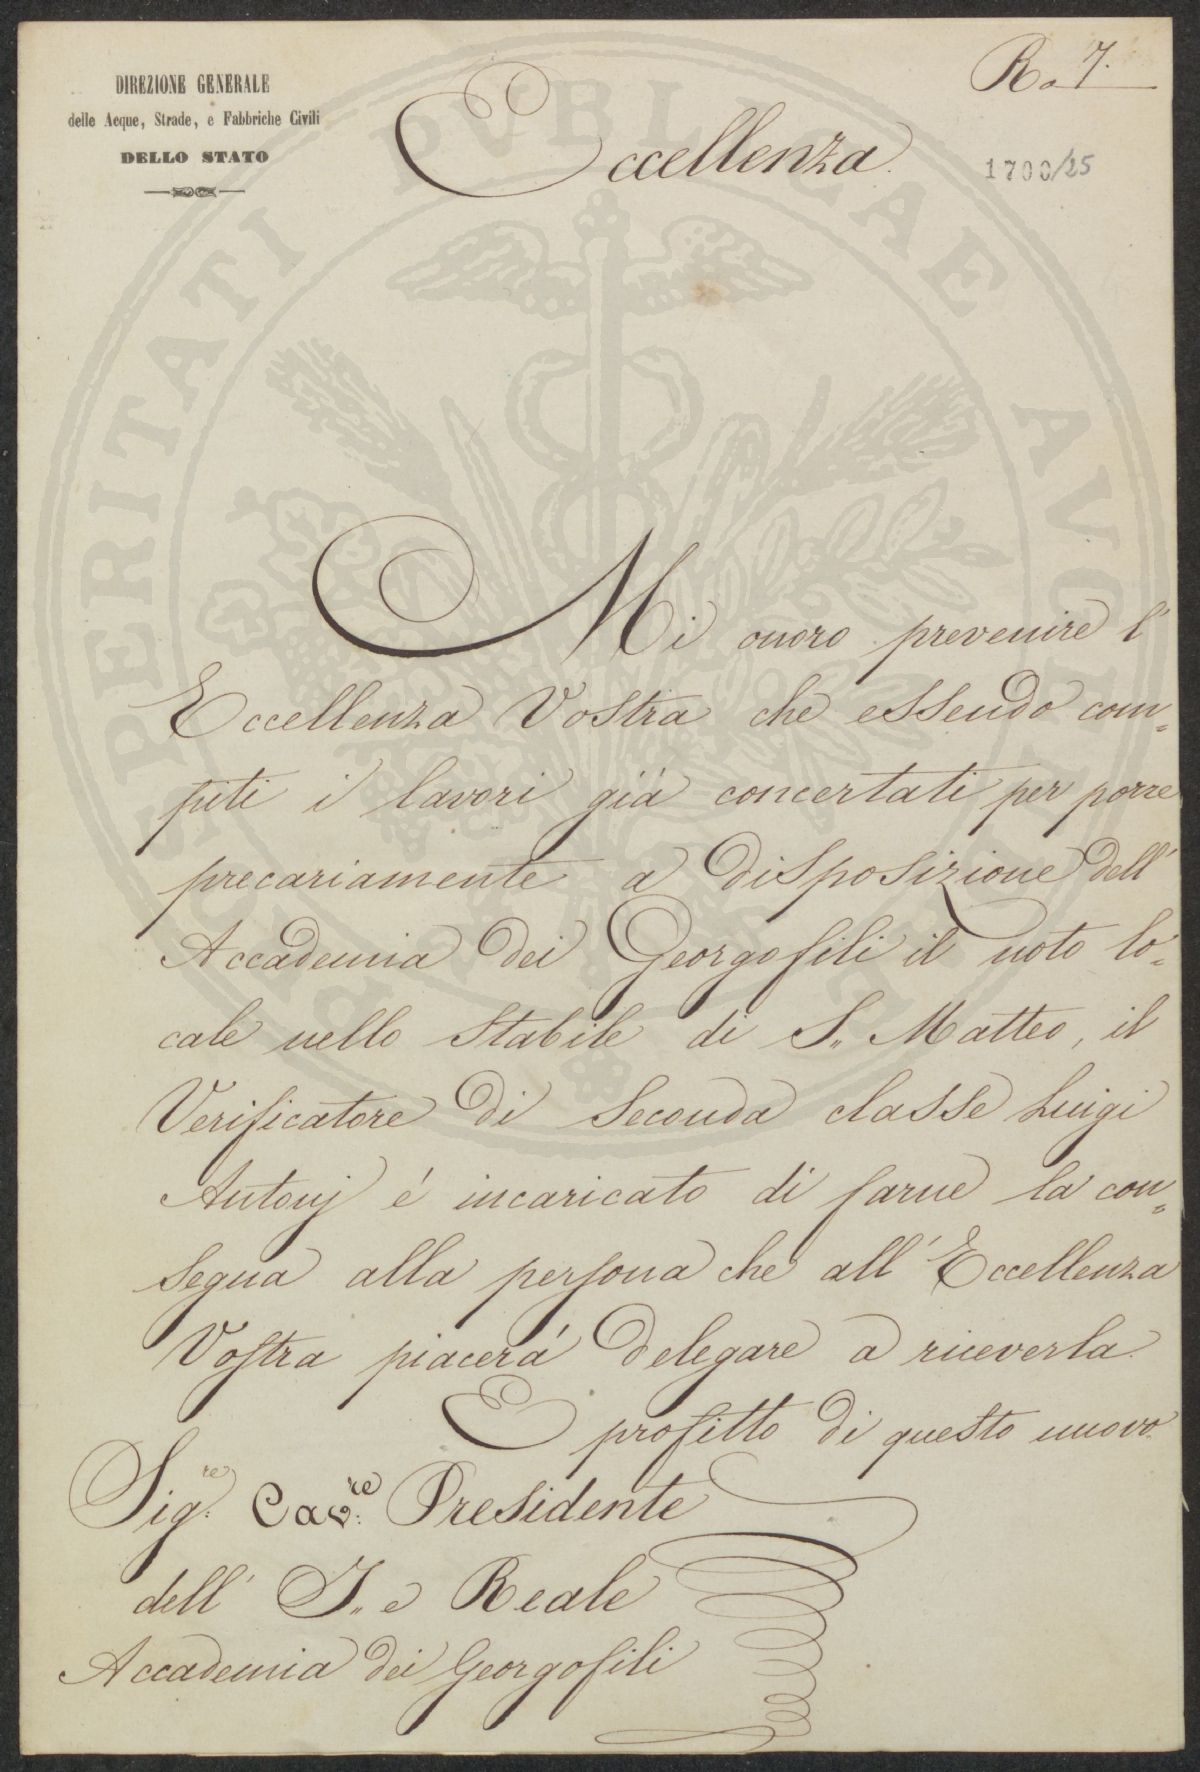 R. 7.
DIREZIONE GENERALE
delle Acque, Strade, e Fabbriche Civili
DELLO STATO
Eccellenza
1700/25
Mi onoro prevenire l'
Eccellenza Vostra che essendo com=
piti i lavori già concertati per porre
precariamente a disposizione dell'
Accademia dei Georgofili il noto lo=
cale nello Stabile di S. Matteo, il
Verificatore di Seconda classe Luigi
Antonj é incaricato di farne la con=
segna alla persona che all'Eccellenza
Vostra piacerà delegare a riceverla.
E profitto di questo nuovo
Sig.re Cav.re Presidente
dell' I. e Reale
Accademia dei Georgofili
PROSPERITATI PVBLICAE AVGENDAE